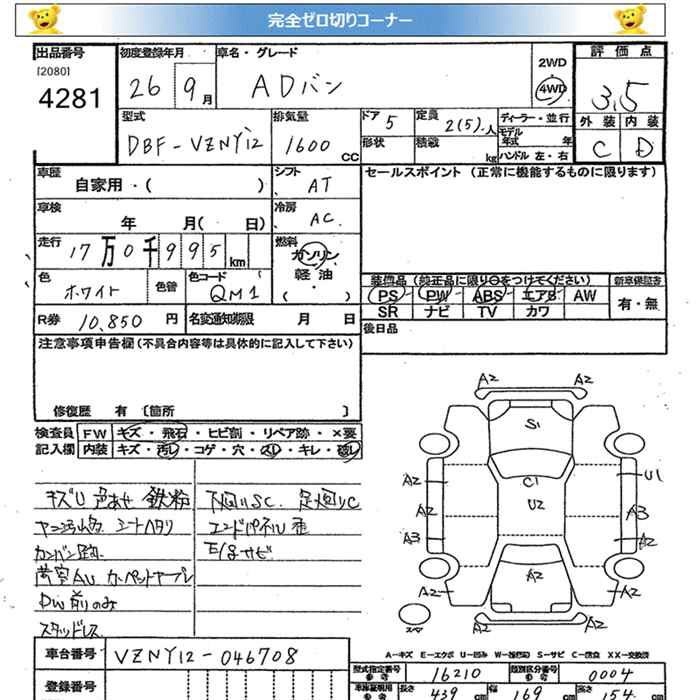 完全ゼロ切りコーナー
出品番号 初度登録年月 車名・グレード 2WD 評価点
[2080]
4281 26 9月 ADバン 4WD 3.5
型式 排気量 ドア 5 定員 2(5)人 ディーラー・並行 外装 内装
DBF-VZNY12 1600CC 形状 積載 kg モデル年式 年 ハンドル 左・右 C D
車歴 自家用・( ) シフト AT セールスポイント(正常に機能するものに限ります)
車検 年 月( 日) 冷房 AC
走行 17万0千995km 燃料 ガソリン 軽油 ( )
色 ホワイト 色替 色コード QM1
装備品(純正品に限り○をつけてください) 新車保証書
PS PW ABS エアB AW 有・無
SR ナビ TV カワ
R券 10,850円 名変通知期限 月 日 後日品
注意事項申告欄(不具合内容等は具体的に記入して下さい)
修復歴 有 [箇所 ]
検査員 FW キズ・飛石・ヒビ割・リペア跡・×要
記入欄 内装 キズ・汚レ・コゲ・穴・スレ・キレ・破レ
キズU 色あせ 鉄粉 下廻りSC. 足廻りC
シートヘタリ エンドパネルU
カンバン跡 サビ
PW前のみ
スタッドレス
A2 A2
S1
A2 C1 U1
A2 U2 A3
A3 A2
A2 A2 A2
スペア A2 A2
A-キズ E-エクボ U-凹み W-補修跡 S-サビ C-腐食 XX-交換済
車台番号 VZNY12-046708
型式指定番号 参考 16210 類別区分番号 参考 0004
登録番号
車庫証明用 参考 長さ 439cm 幅 169cm 高さ 154cm